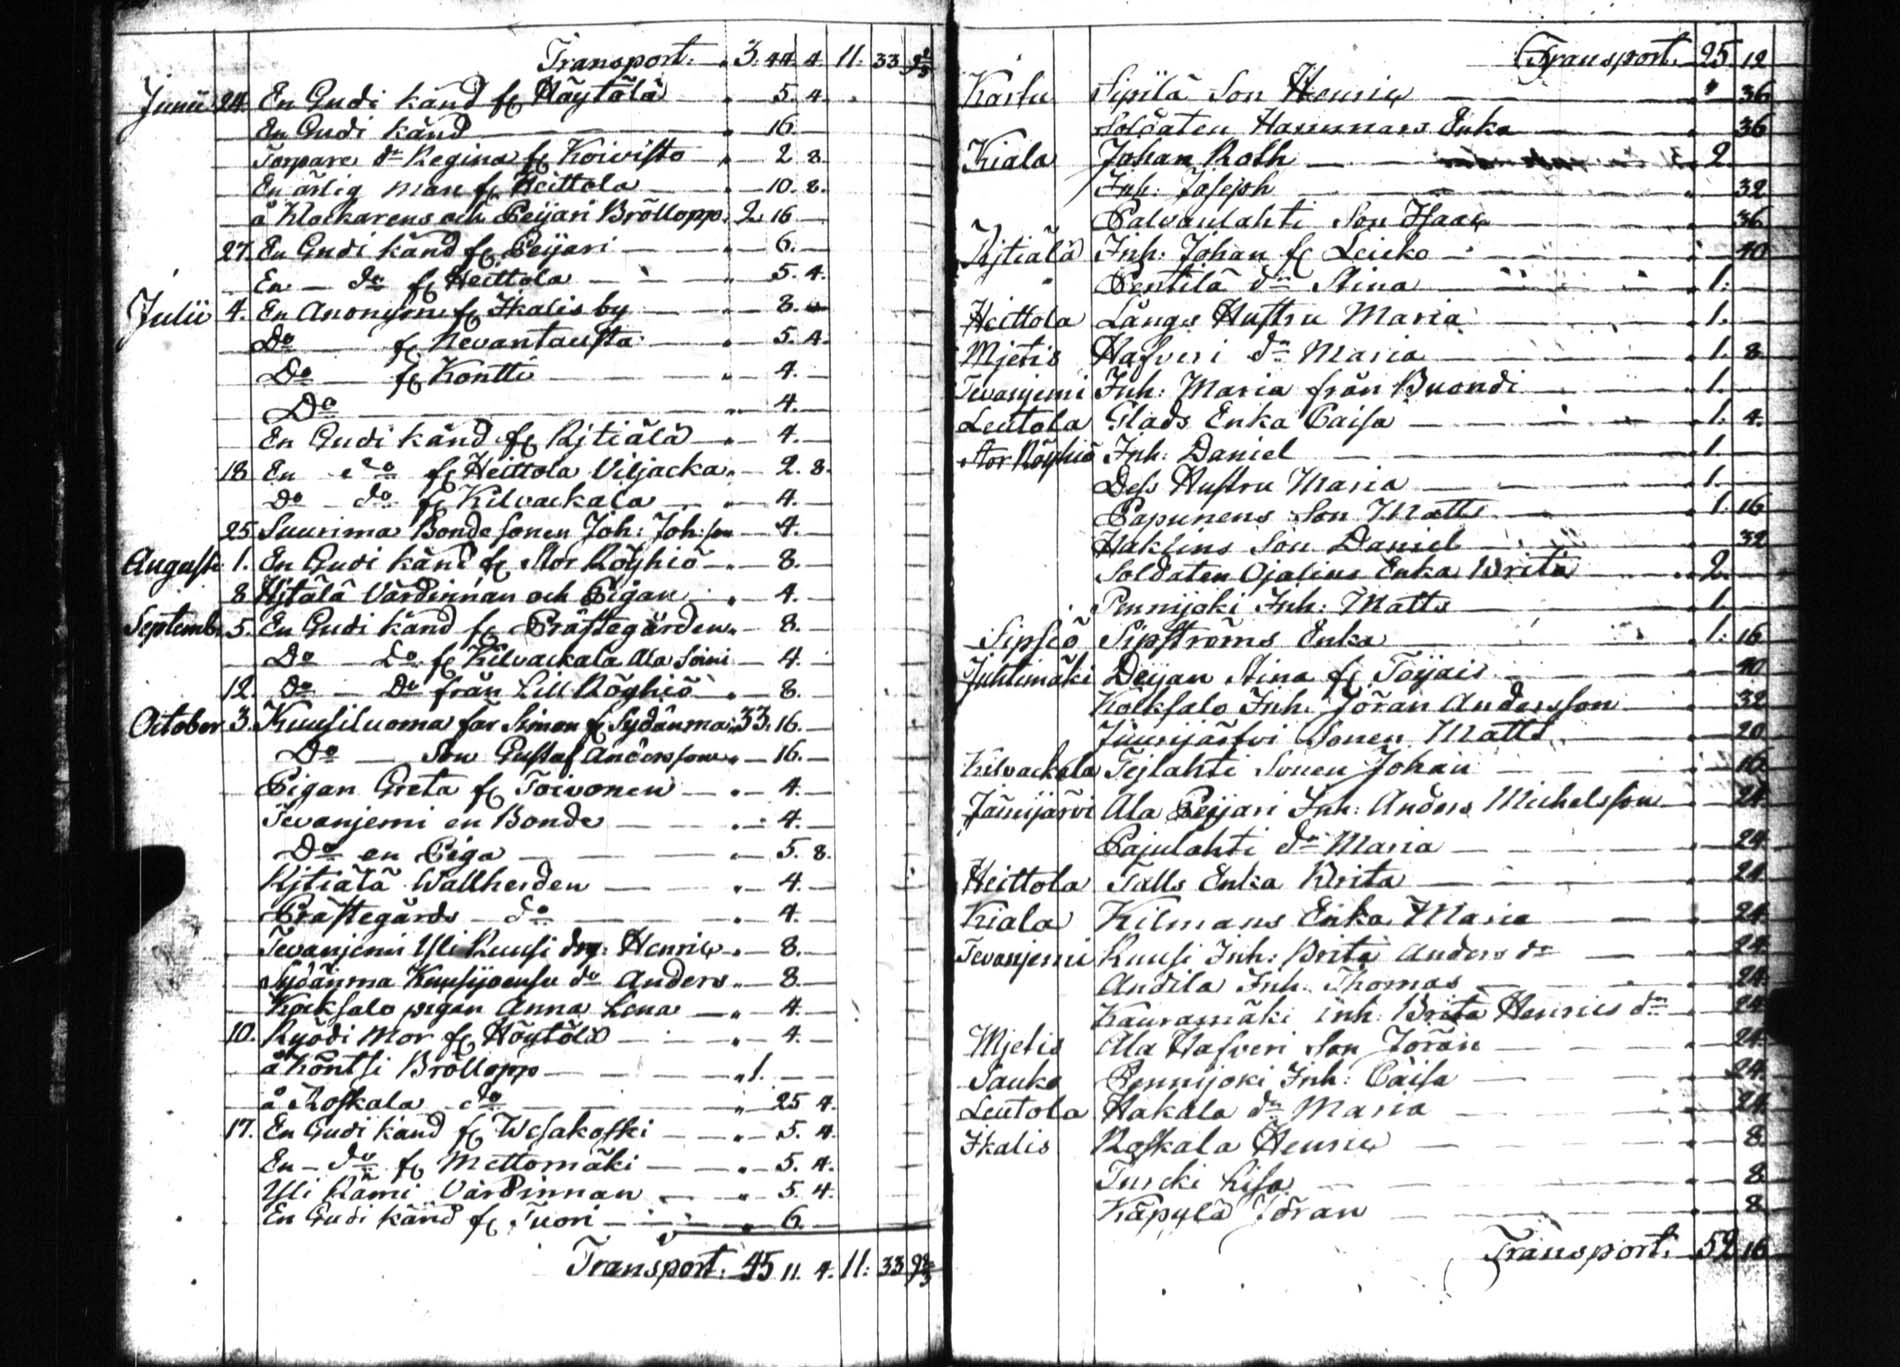 Transport. " 3. 44. 4. 11. 33 9 2/3
Junii 24. En Gudi känd fr Häytälä " 5. 4.
En Gudi känd " 16.
Torpare dr Regina fr Koivisto " 2. 8.
En ärlig man fr Heittola " 10. 8.
å Klockarens och Peijari Bröllopp. 2. 16
27. En Gudi känd fr Peijari " 6.
En do fr Heittola " 5. 4.
Julii 4. En Anonym fr Ikalis by " 8.
Do fr Nevantausta " 5. 4
Do fr Kontti " 4.
Do " 4.
En Gudi känd fr Kjtiälä " 4.
18. En do fr Heittola Viljacka " 2. 8.
Do do fr Kilvackala " 4.
25. Suurima Bonde sonen Joh: Joh:son 4.
Augusti 1. En Gudi känd fr Stor Röyhiö " 8.
8. Värdinnan och Pigan " 4.
Septemb. 5. En Gudi känd fr Prästegården " 8.
Do Do fr Kilvackala Ala Soini 4.
12. Do Do från Lill Röyhiö " 8.
October 3. Kuusiluoma far Simon fr Sydänma 33. 16.
Do Son Gustaf Andersson " 16.
Pigan Greta fr Toivonen " 4.
Tevanjemi en Bonde " 4.
Do en Piga " 5. 8.
Kjtiälä Wallherden " 4.
Prästegårds do " 4.
Tevanjemi Yli Ruusi drg: Henric " 8.
Sydänma do Anders " 8.
Kocksalo pigan Anna Lena " 4.
10. Mor fr Höytölä " 4.
å Kontti Bröllopp " 1.
å Roskala do " 25 4.
17. En Gudi känd fr Wesakoski " 5. 4.
En do fr Mettomäki " 5. 4.
Yli Rämi Värdinnan " 5. 4.
En Gudi känd fr Tuori " 6.
Transport. 45 11. 4. 11. 33 9 2/3
Transport. 25 12
Kartu Sipilä Son Henric " 36
Soldaten Hammars Enka 36
Kiala Johan Roth 2
Inh: Joseph 32
Palvanlahti Son Isaac 36
Kjtiälä Inh: Johan fr Leicko 40
Pentilä dr Stina 1.
Heittola Långs Hustru Maria 1.
Mjetis Hafveri dr Maria 1. 8
Tevanjemi Inh: Maria från Buondi 1.
Leutola Glads Enka Caisa 1. 4.
Stor Röyhiö Inh: Daniel 1.
Dess Hustru Maria 1.
Papunens Son Matts 1. 16
Haklins Son Daniel 32
Soldaten Ojalins Enka Brita 2.
Pennijoki Inh: Matts 1.
Sipsiö Sipströms Enka 1. 16
Juhtimäki Deijan Stina fr Töyäis 40
Koiksalo Inh: Jöran Andersson 32
Juurijärfvi Sonen Matts 20
Kilvackala Tejlahti Sonen Johan 16
Jämijärvi Ala Peijari Inh: Anders Michelsson 24
Pajulahti dr Maria 24
Heittola Talls Enka Brita 24
Kiala Kilmans Enka Maria 24
Tevanjemi Ruusi Inh: Brita Anders dr 24
Andila Inh. Thomas 24
Kauramäki inh: Brita Henrics dr 24
Mjetis Ala Hafveri Son Jöran 24
Sauko Pennijoki Inh: Caisa 24
Leutola Hakala dr Maria 24
Ikalis Roskala Henric 8
Turcki Lisa 8
Käpylä Jöran 8
Transport. 52 16